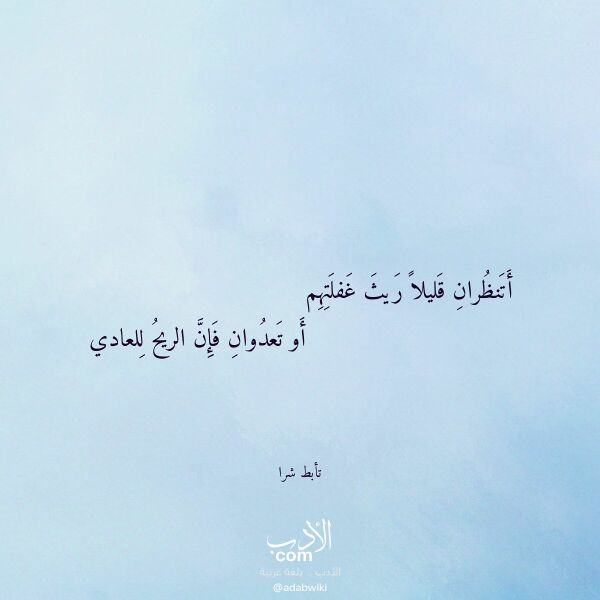 أَتَنظُرانِ قَليلاً رَيثَ غَفلَتِهِم
أَو تَعدُوانِ فَإِنَّ الريحُ لِلعادي
تأبط شرا
الأدب
com
الأدب .. بلغة عربية
@adabwiki